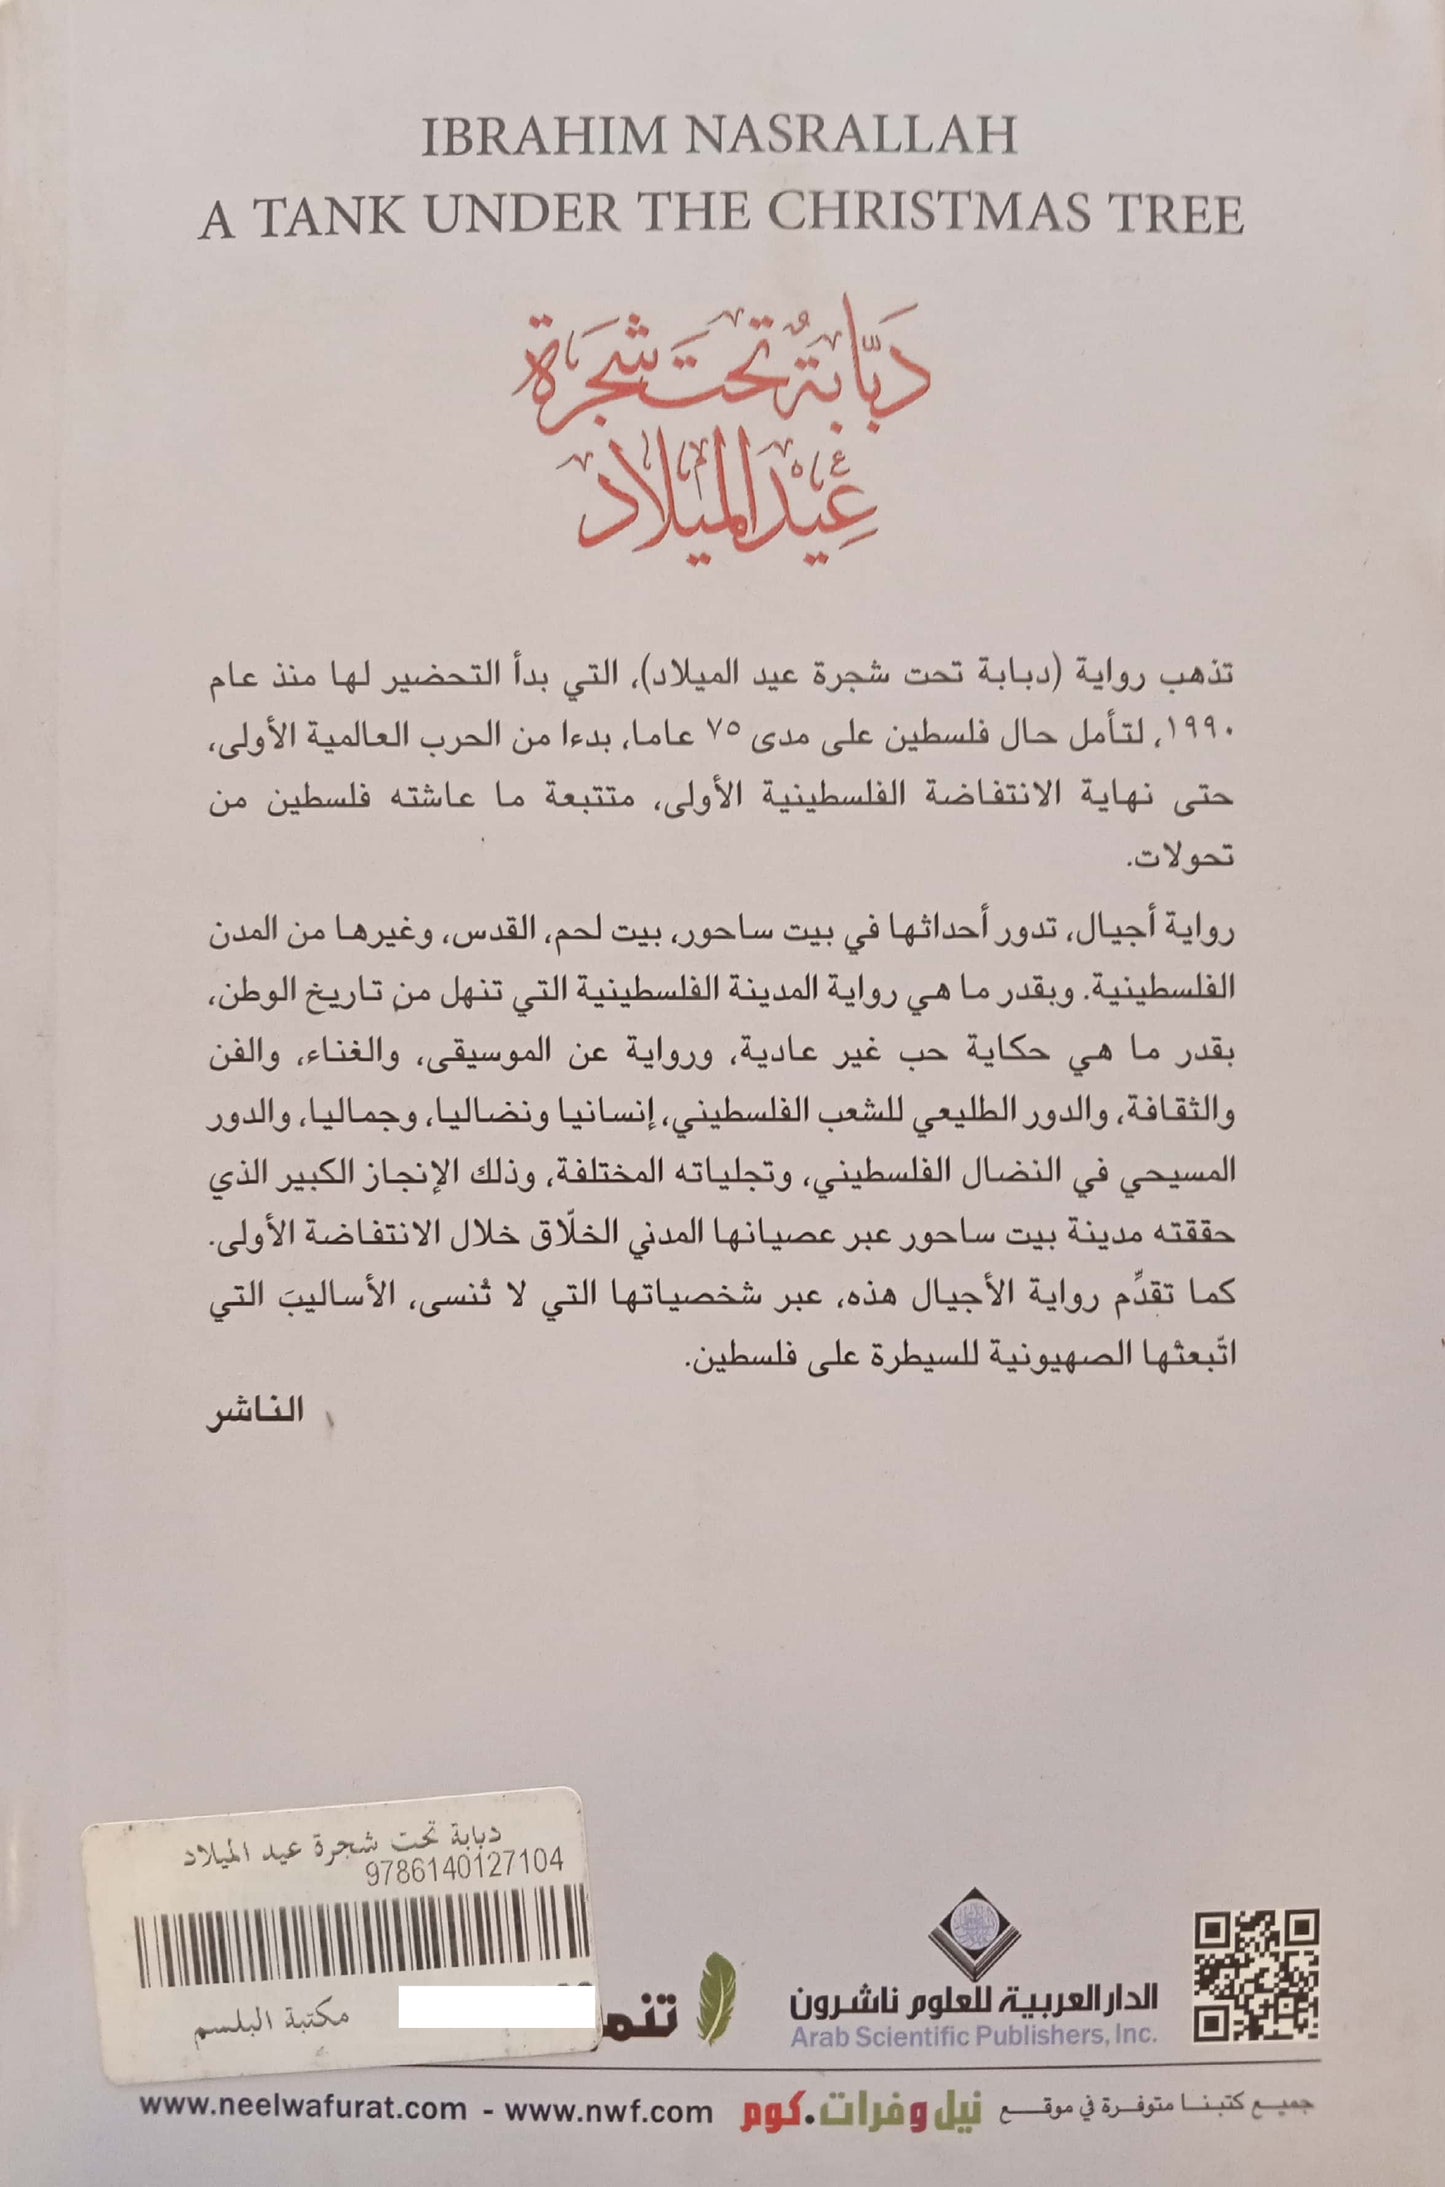 IBRAHIM NASRALLAH
A TANK UNDER THE CHRISTMAS TREE
دَبَّابَةٌ تَحتَ شَجَرَة
عِيْدِ المِيْلاد
تذهب رواية (دبابة تحت شجرة عيد الميلاد)، التي بدأ التحضير لها منذ عام
١٩٩٠، لتأمل حال فلسطين على مدى ٧٥ عاما، بدءا من الحرب العالمية الأولى،
حتى نهاية الانتفاضة الفلسطينية الأولى، متتبعة ما عاشته فلسطين من
تحولات.
رواية أجيال، تدور أحداثها في بيت ساحور، بيت لحم، القدس، وغيرها من المدن
الفلسطينية. وبقدر ما هي رواية المدينة الفلسطينية التي تنهل من تاريخ الوطن،
بقدر ما هي حكاية حب غير عادية، ورواية عن الموسيقى، والغناء، والفن
والثقافة، والدور الطليعي للشعب الفلسطيني، إنسانيا ونضاليا، وجماليا، والدور
المسيحي في النضال الفلسطيني، وتجلياته المختلفة، وذلك الإنجاز الكبير الذي
حققته مدينة بيت ساحور عبر عصيانها المدني الخلّاق خلال الانتفاضة الأولى.
كما تقدِّم رواية الأجيال هذه، عبر شخصياتها التي لا تُنسى، الأساليبَ التي
اتّبعتْها الصهيونية للسيطرة على فلسطين.
الناشر
دبابة تحت شجرة عيد الميلاد
9786140127104
مكتبة البلسم
تنم
الدار العربية للعلوم ناشرون
Arab Scientific Publishers, Inc.
جميع كتبنا متوفرة في موقع نيل وفرات.كوم www.neelwafurat.com - www.nwf.com